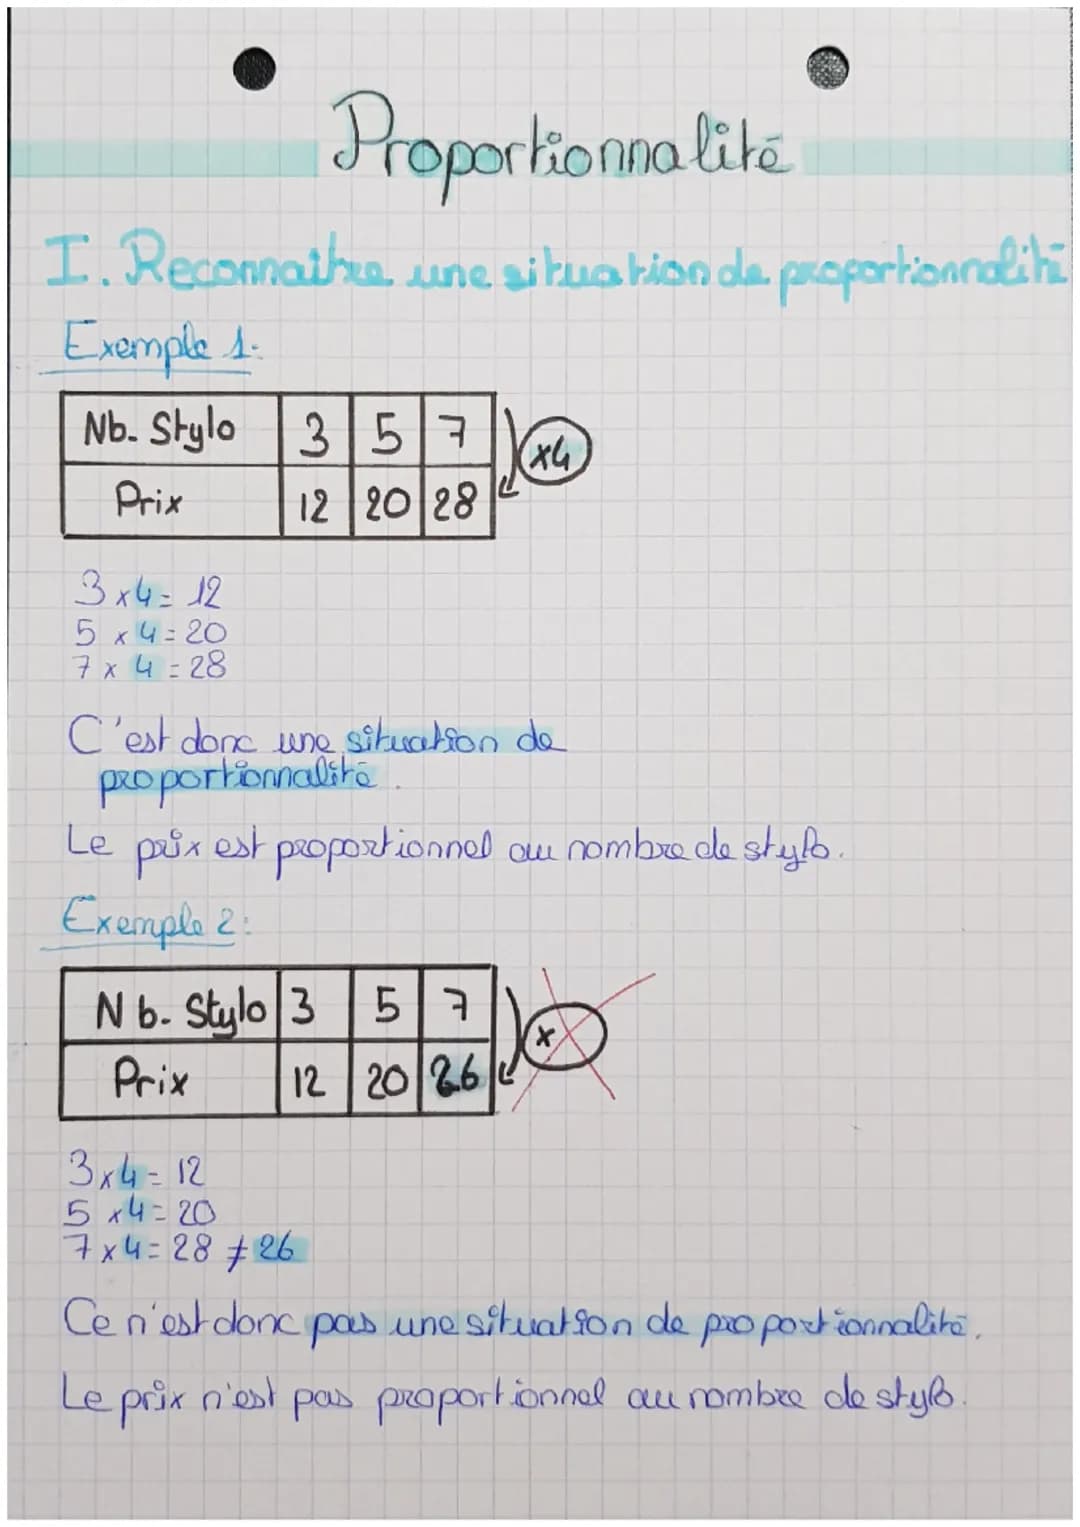 Proportionnalité
I. Reconnaître une situation de proportionnalité
Exemple 1.
Nb. Stylo 3 5 7
x4
Prix 12 20 28
3 x 4 = 12
5 x 4 = 20
7 x 4 = 28
C'est donc une situation de
proportionnalité.
Le prix est proportionnel au nombre de stylo.
Exemple 2:
Nb. Stylo 3 5 7
x
Prix 12 20 26
3 x 4 = 12
5 x 4 = 20
7 x 4 = 28 ≠ 26
Ce n'est donc pas une situation de proportionnalité.
Le prix n'est pas proportionnel au nombre de stylo.